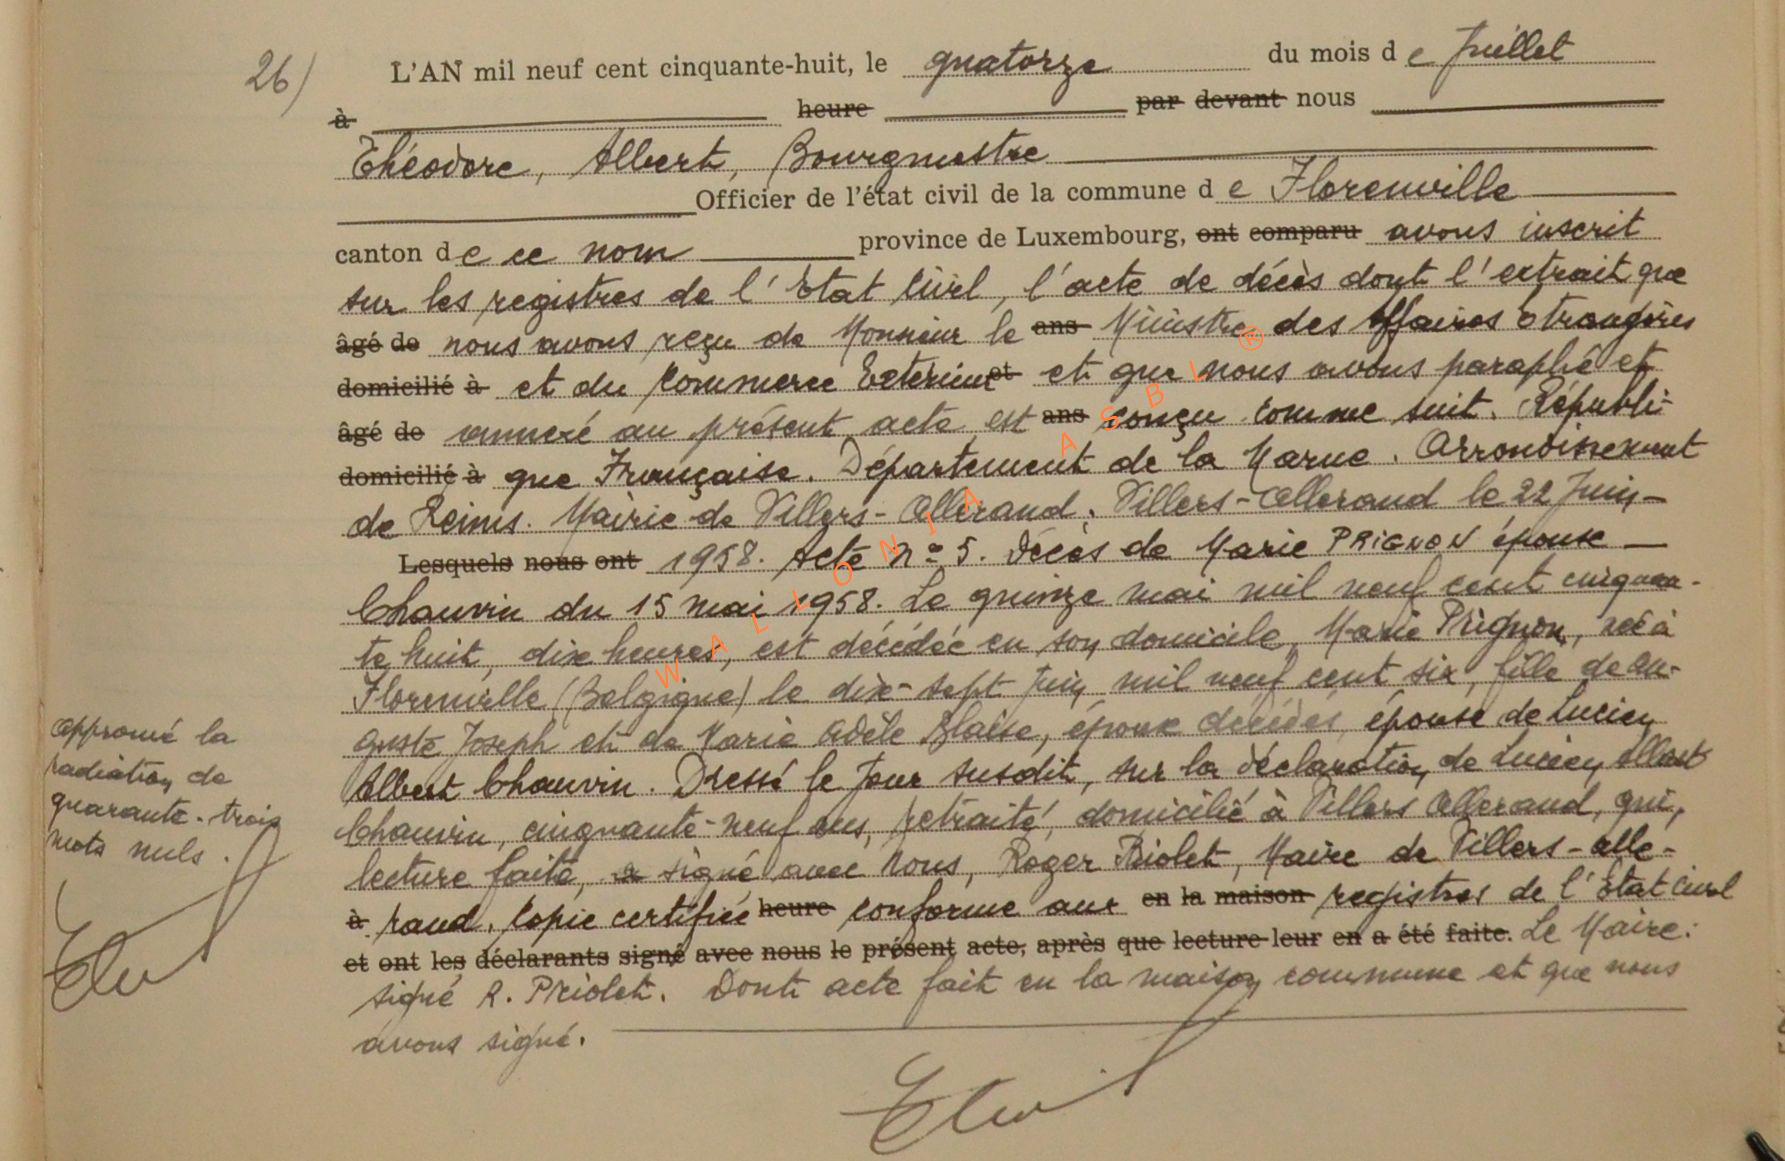 26) L'AN mil neuf cent cinquante-huit, le quatorze du mois de Juillet
à heure par devant nous
Théodore, Albert, Bourgmestre
Officier de l'état civil de la commune de Florenville
canton de ce nom province de Luxembourg, ont comparu avons inscrit
sur les registres de l'Etat Civil, l'acte de décès dont l'extrait que
âgé de nous avons reçu de Monsieur le ans Ministre des Affaires étrangères
domicilié à et du Commerce Extérieur et et que nous avons paraphé et
âgé de annexé au présent acte est ans conçu comme suit. Républi-
domicilié à que Française. Département de la Marne. Arrondissement
de Reims. Mairie de Villers-Allerand. Villers-Allerand le 22 Juin
Lesquels nous ont 1958. Acte n° 5. Décès de Marie PRIGNON épouse
Chauvin du 15 mai 1958. Le quinze mai mil neuf cent cinquan-
te huit, dix heures, est décédée en son domicile, Marie Prignon, née à
Florenville (Belgique) le dix-sept Juin mil neuf cent six, fille de Au-
guste Joseph et de Marie Adèle Blaise, époux décédés, épouse de Lucien
Albert Chauvin. Dressé le Jour susdit, sur la déclaration de Lucien Albert
Chauvin, cinquante-neuf ans, retraité, domicilié à Villers Allerand, qui,
lecture faite, a signé avec Nous, Roger Priolet, Maire de Villers-Alle-
à rand. Copie certifiée heure conforme aux en la maison registres de l'Etat Civil
et ont les déclarants signé avec nous le présent acte, après que lecture leur en a été faite. Le Maire:
signé R. Priolet. Dont acte fait en la maison communne et que nous
avons signé.
approuvé la
radiation de
quarante-trois
mots nuls.
WALLONIA ASBL ®